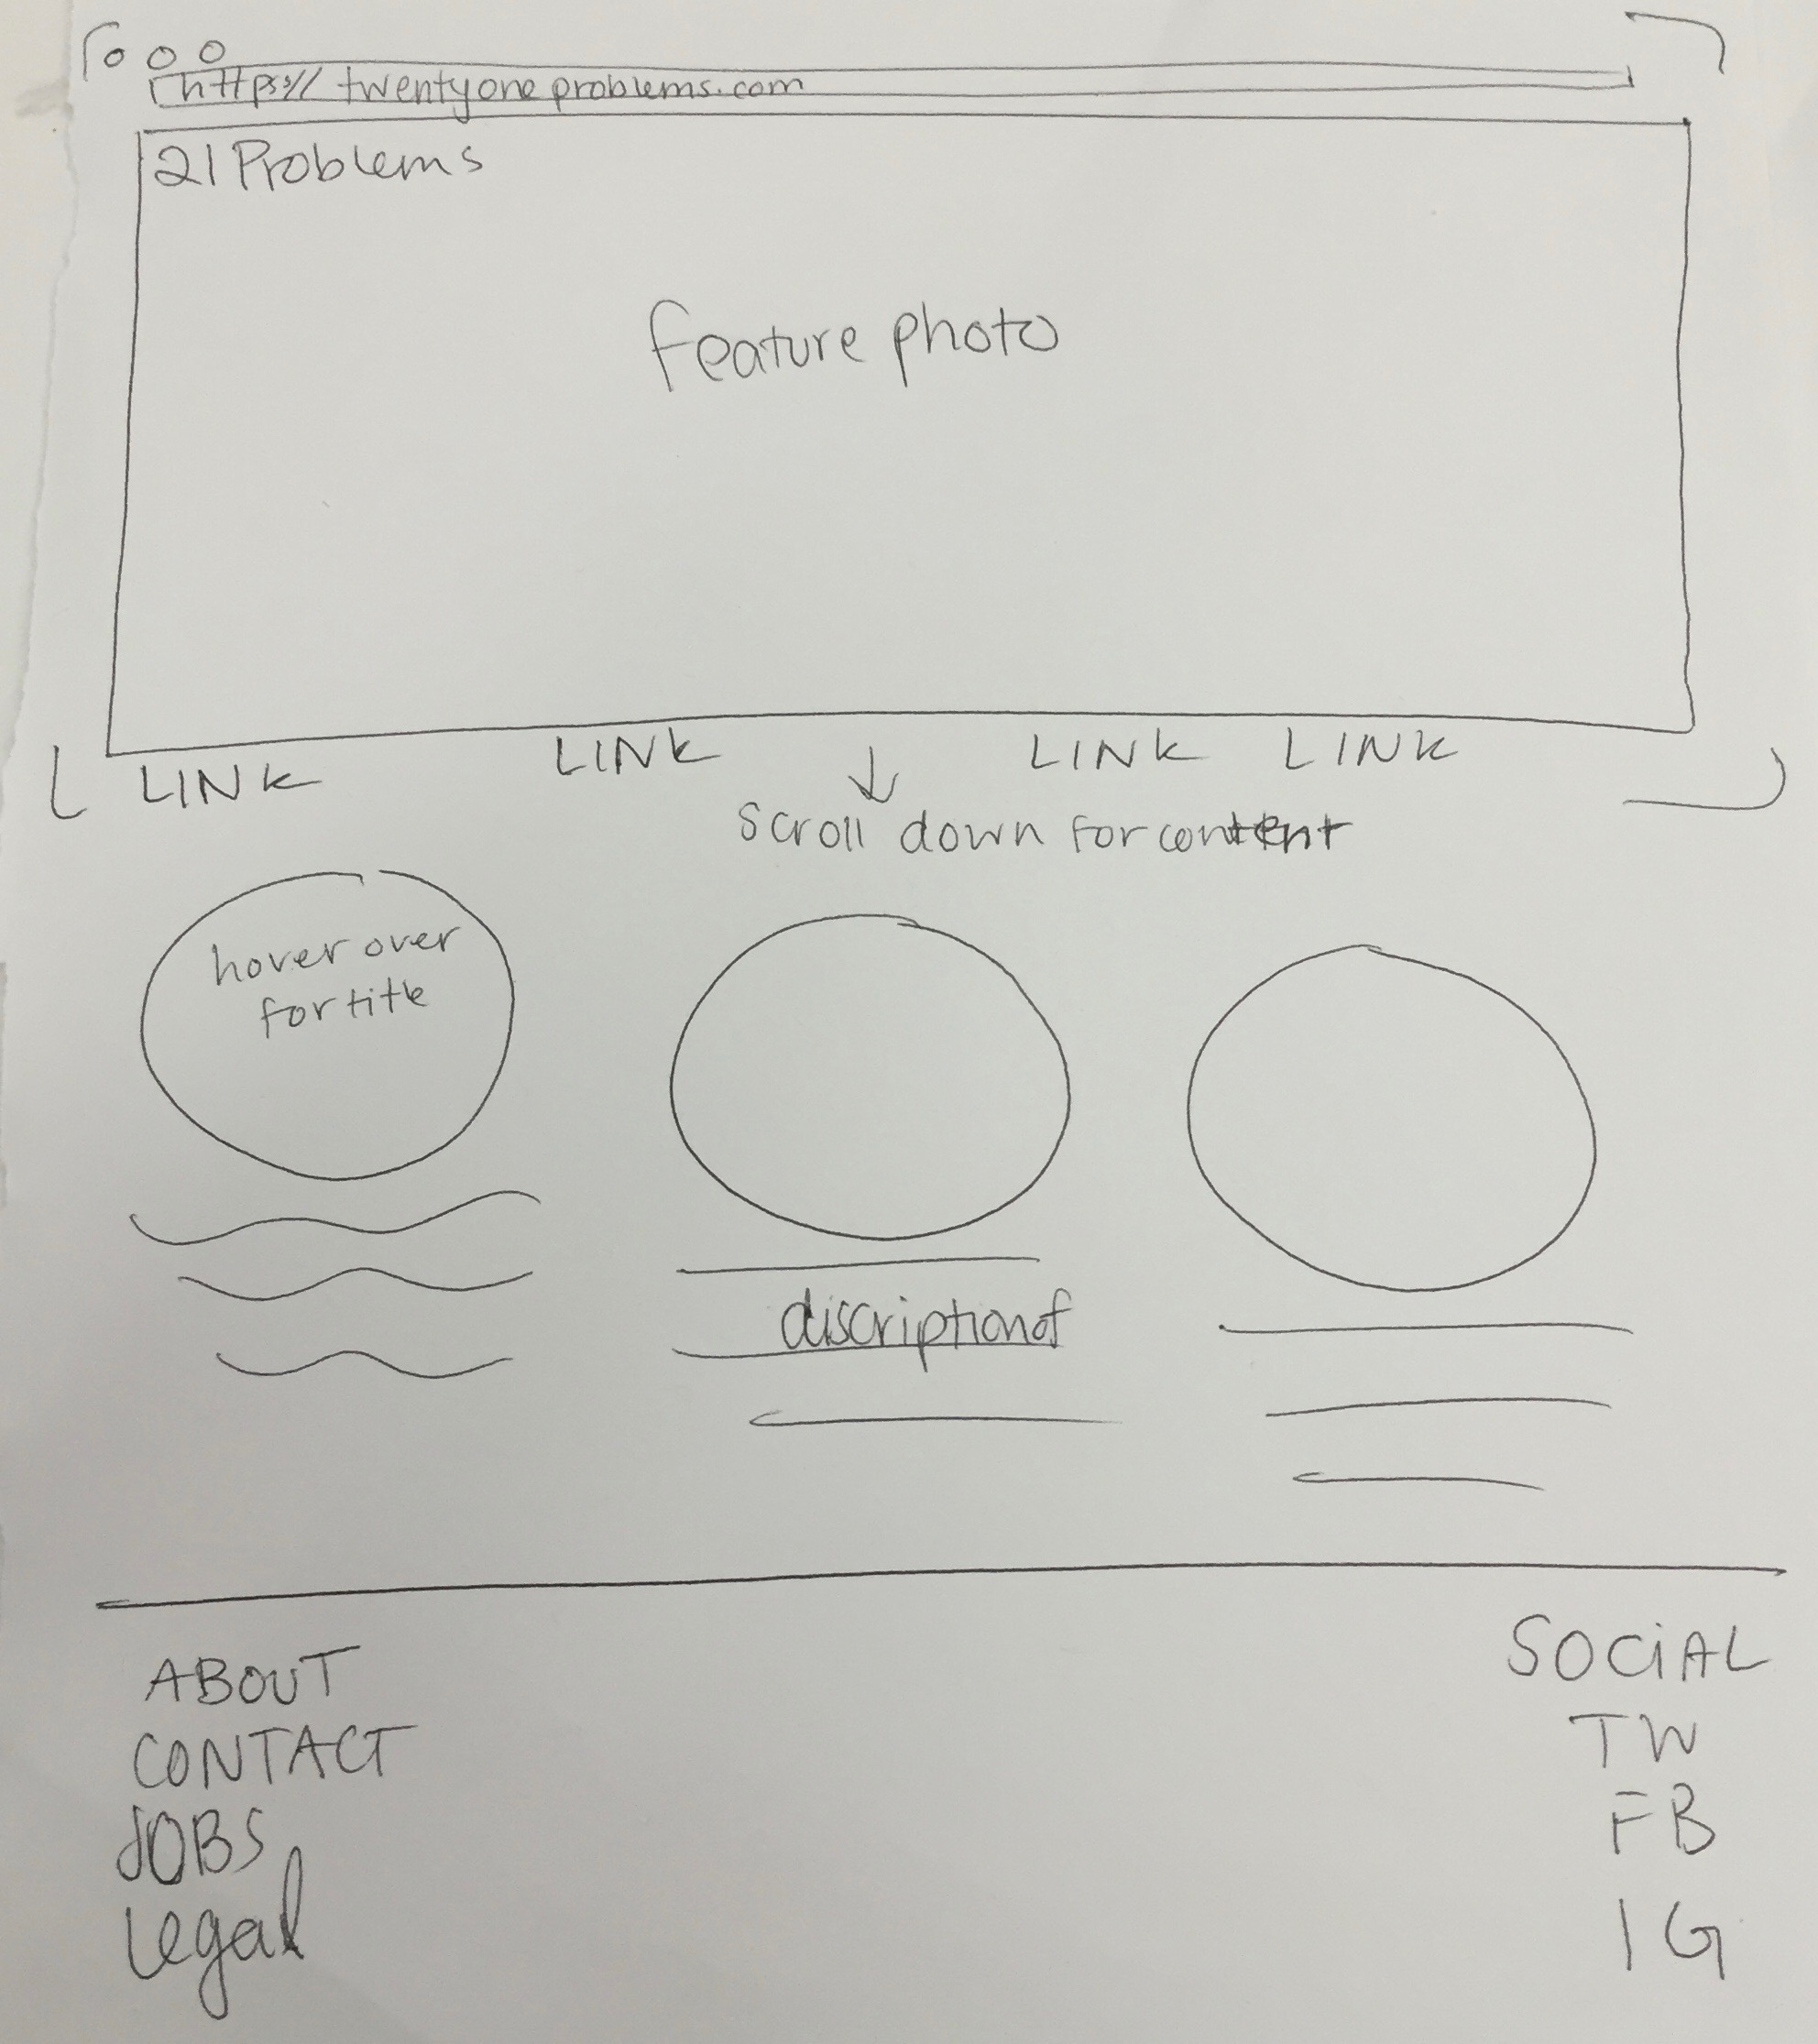 https:// twentyoneproblems.com
21 Problems
feature photo
LINK LINK LINK LINK
↓
Scroll down for content
hover over
for title
discriptionof
ABOUT
CONTACT
JOBS
Legal
SOCiAL
TW
FB
IG